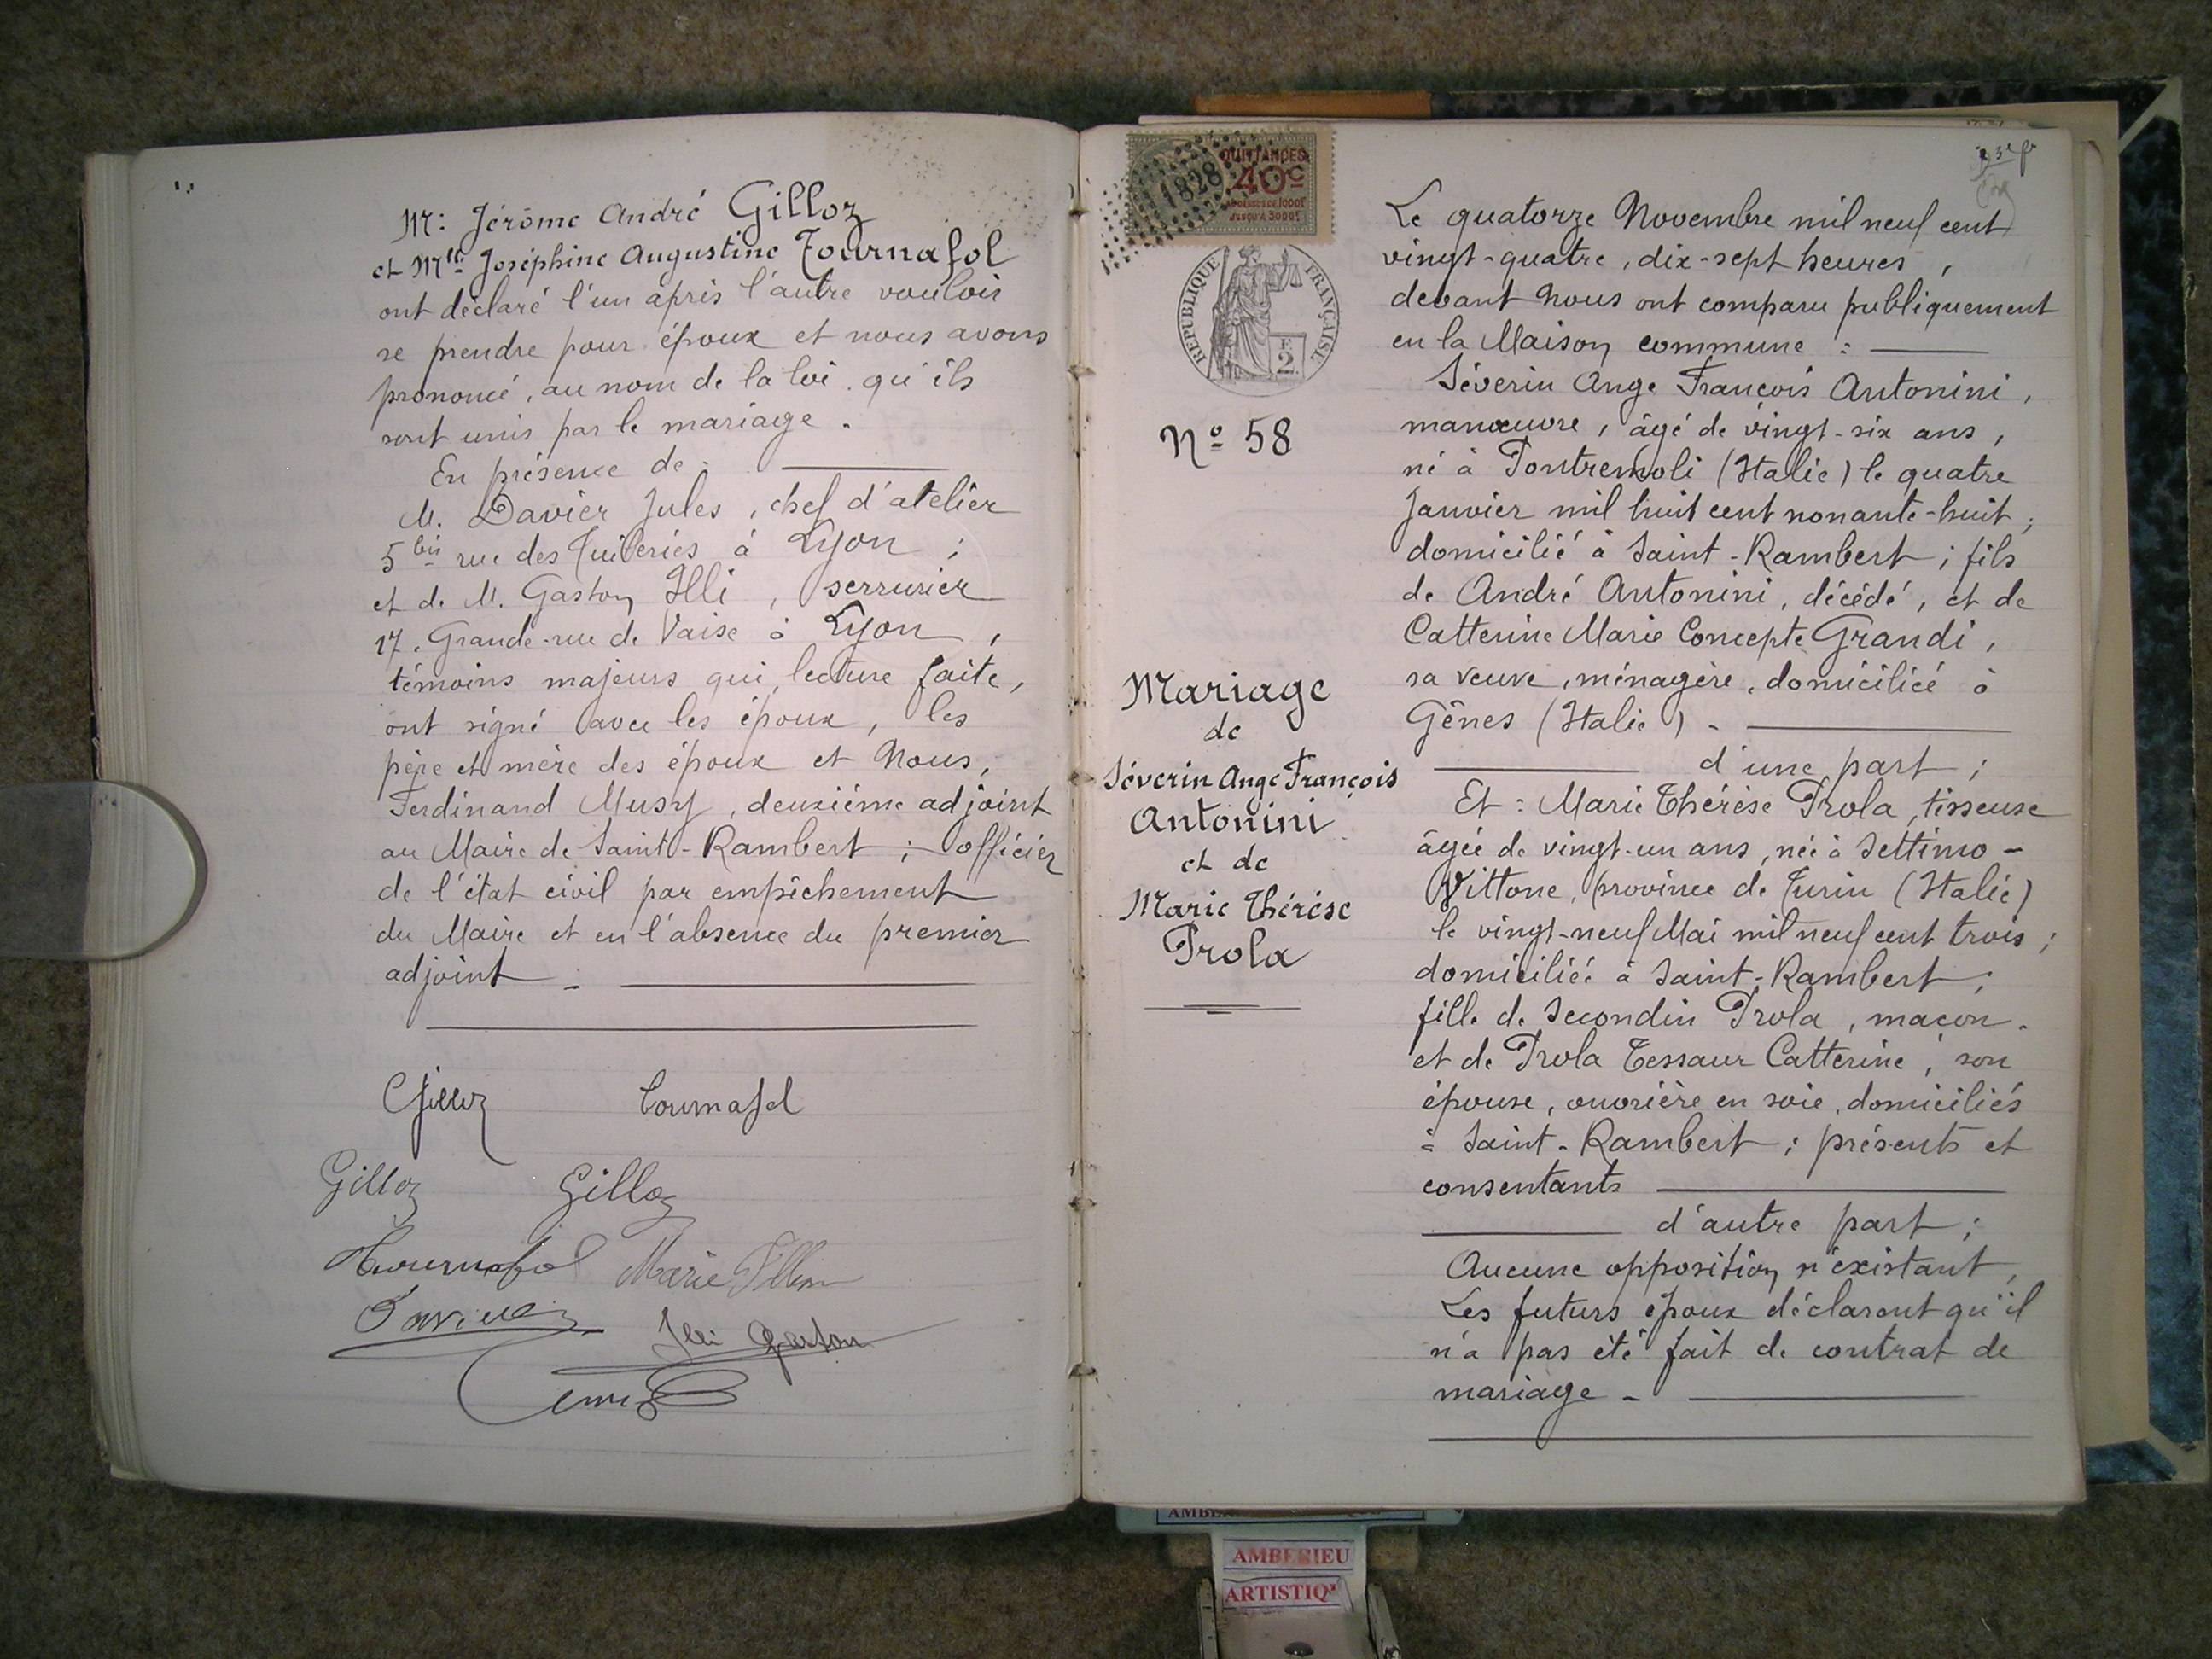 M: Jérôme André Gilloz
et Mlle Joséphine Augustine Tournafol
ont déclaré l'un après l'autre vouloir
se prendre pour époux et nous avons
prononcé, au nom de la loi, qu'ils
sont unis par le mariage.
En présence de:
M. Davier Jules, chef d'atelier
5 bis rue des Tuileries à Lyon;
et de M. Gaston Illi, serrurier
17, Grande-rue de Vaise à Lyon,
témoins majeurs qui, lecture faite,
ont signé avec les époux, les
père et mère des époux et Nous,
Ferdinand Musy, deuxième adjoint
au Maire de Saint-Rambert; officier
de l'état civil par empêchement
du Maire et en l'absence du premier
adjoint -
Gilloz Tournafol
Gilloz Gilloz
Tournafol Marie
Illi Gaston
1828
QUITTANCES
40c
REPUBLIQUE FRANÇAISE
F. 2.
No 58
Mariage
de
Séverin Ange François
Antonini
et de
Marie Thérèse
Prola
Le quatorze Novembre mil neuf cent
vingt-quatre, dix-sept heures,
devant Nous ont comparu publiquement
en la Maison commune :
Séverin Ange François Antonini,
manœuvre, âgé de vingt-six ans,
né à Pontremoli (Italie) le quatre
Janvier mil huit cent nonante-huit;
domicilié à Saint-Rambert; fils
de André Antonini, décédé, et de
Catterine Marie Concepte Grandi,
sa veuve, ménagère, domiciliée à
Gênes (Italie) -
d'une part;
Et : Marie Thérèse Prola, tisseuse
âgée de vingt-un ans, née à Settimo-
Vittone, province de Turin (Italie)
le vingt-neuf Mai mil neuf cent trois;
domiciliée à Saint-Rambert;
fille de Secondin Prola, maçon.
et de Prola Tessaur Catterine, son
épouse, ouvrière en soie, domiciliés
à Saint-Rambert; présents et
consentants
d'autre part;
Aucune opposition n'existant,
Les futurs époux déclarent qu'il
n'a pas été fait de contrat de
mariage -
AMBERIEU
ARTISTIQ